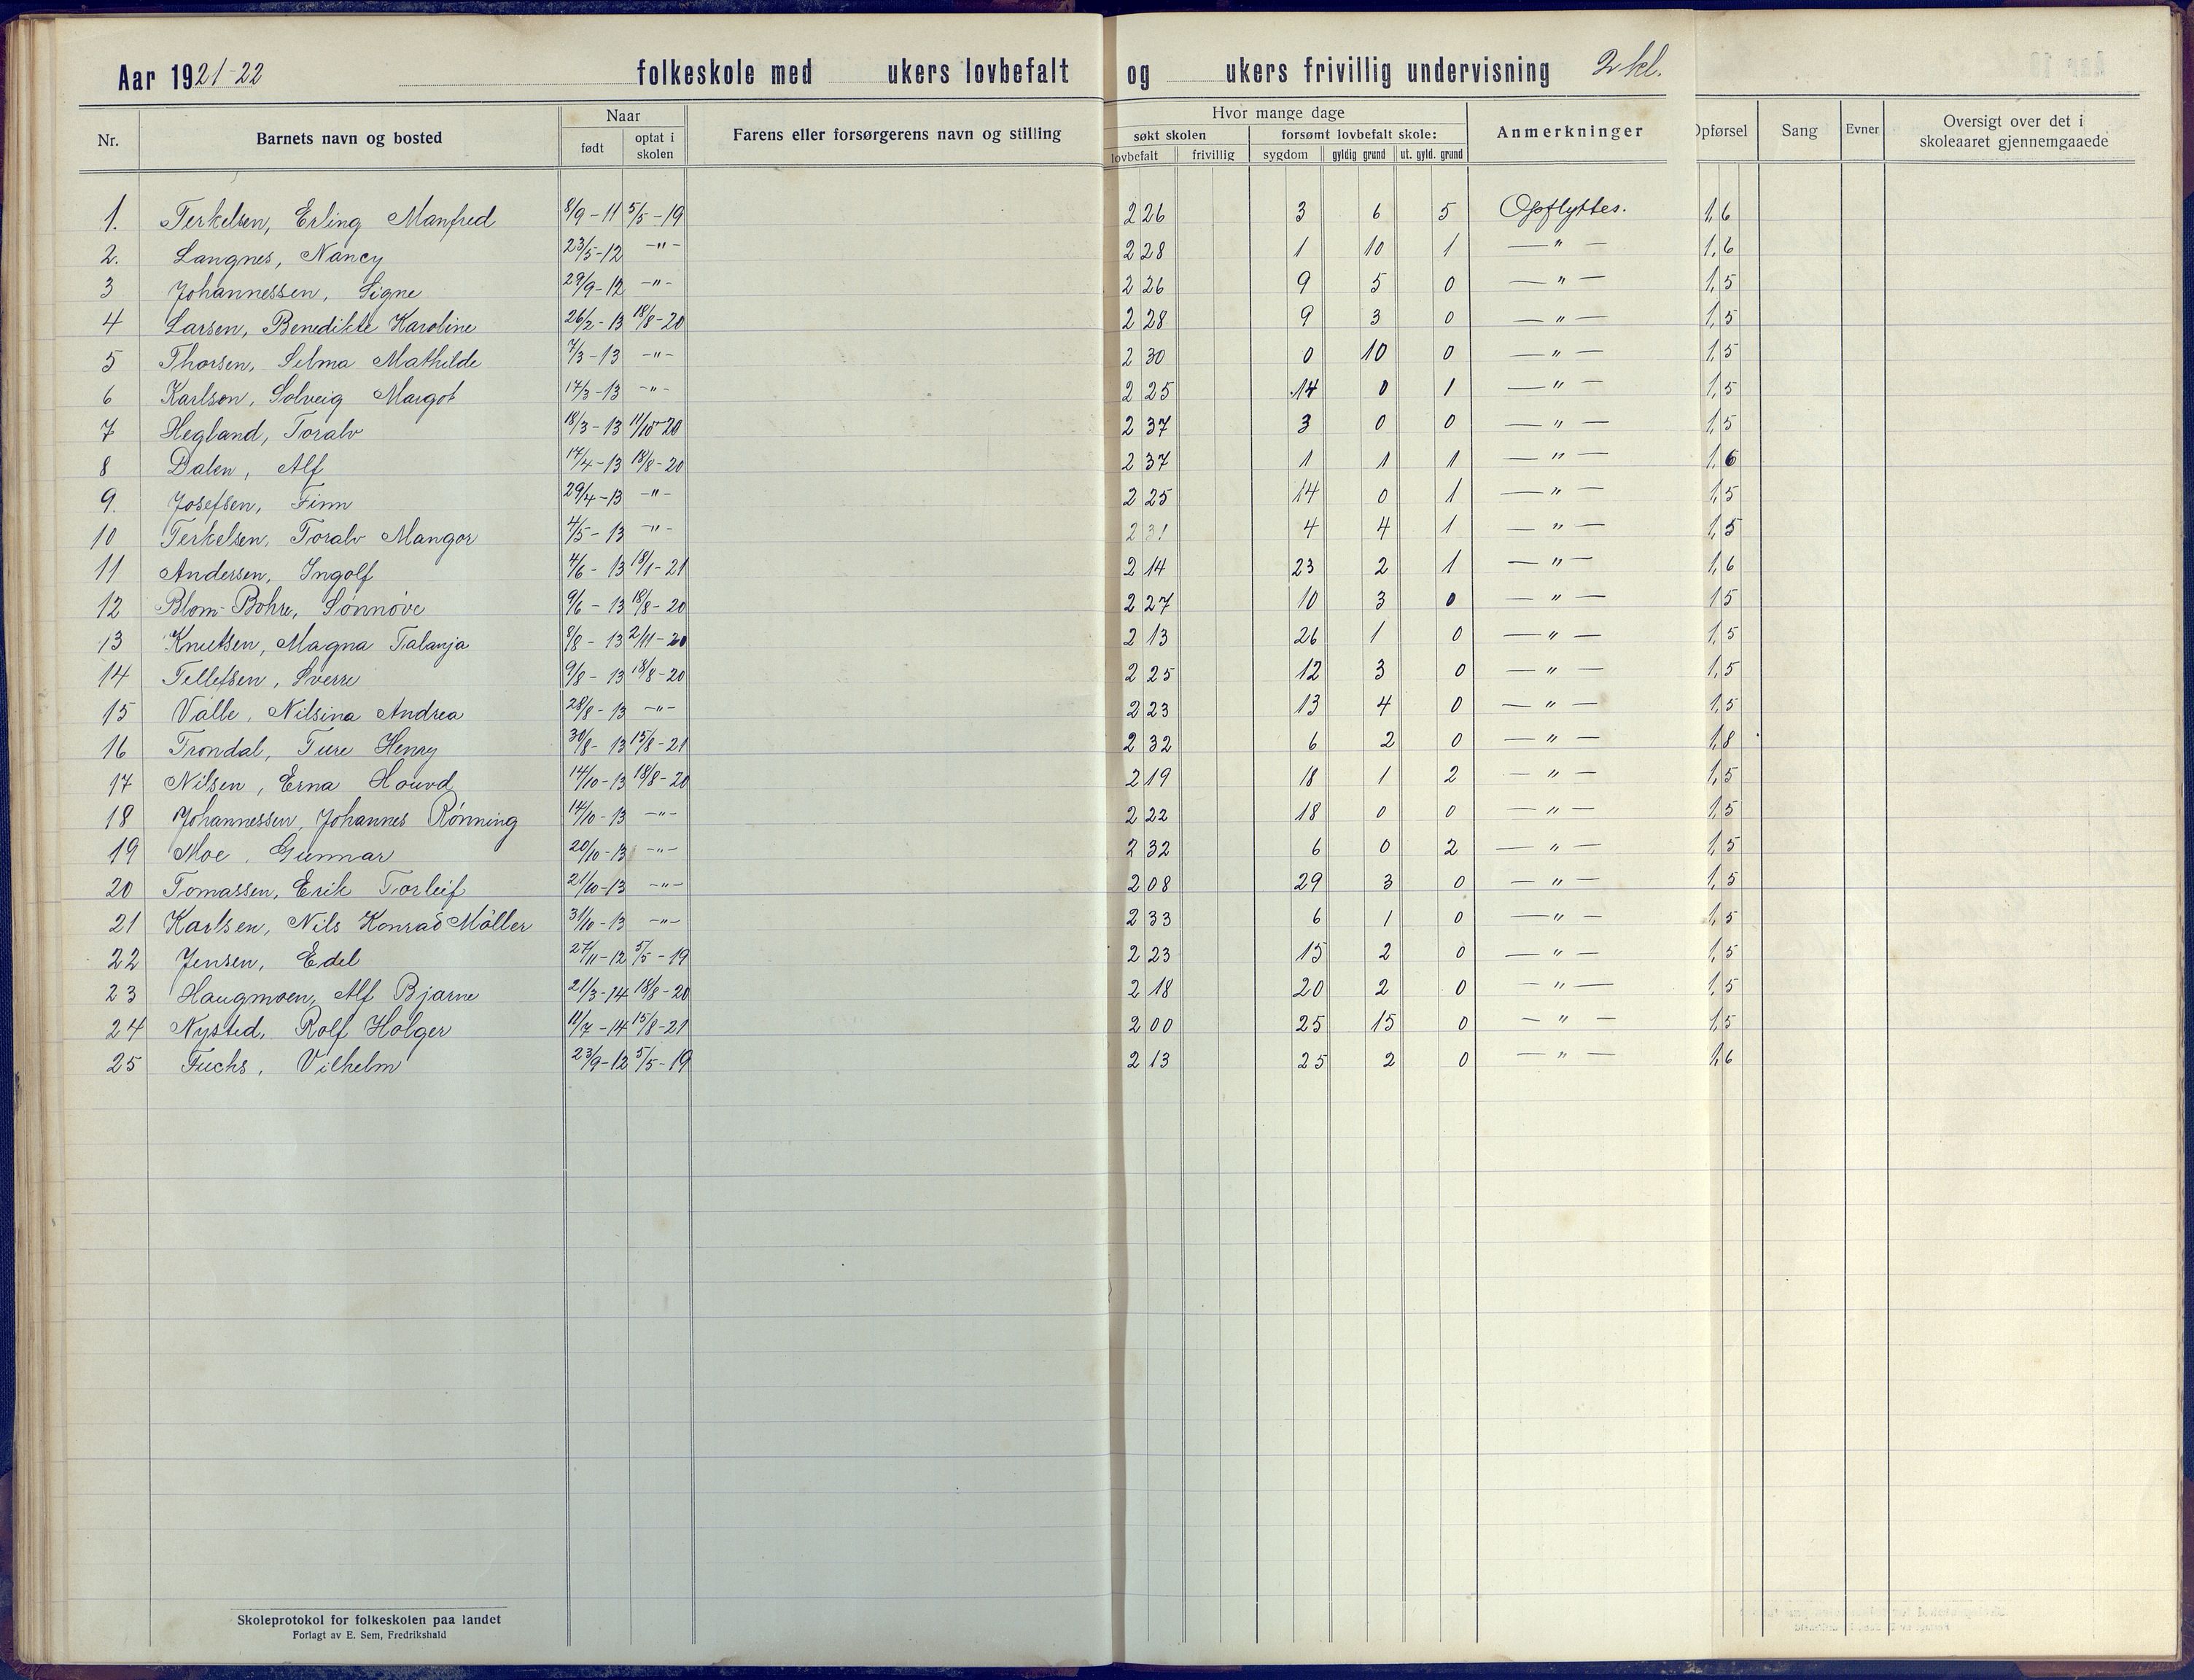 Aar 1921-22 folkeskole med ukers lovbefalt og ukers frivillig undervisning 2 kl.
Nr. Barnets navn og bosted Naar født optat i skolen Farens eller forsørgerens navn og stilling Hvor mange dage søkt skolen lovbefalt frivillig forsømt lovbefalt skole: sygdom gyldig grund ut. gyld. grund Anmerkninger Opførsel Sang Evner Oversigt over det i skoleaaret gjennemgaaede
1. Terkelsen, Erling Manfred 8/9-11 5/5-19 226 3 6 5 Opflyttes. 1,6
2. Langnes, Nancy 23/5-12 -"- 228 1 10 1 -"- 1,6
3 Johannessen, Signe 29/9-12 -"- 226 9 5 0 -"- 1,5
4 Larsen, Benedikte Karoline 26/2-13 18/8-20 228 9 3 0 -"- 1,5
5 Thorsen, Selma Mathilde 7/3-13 -"- 230 0 10 0 -"- 1,5
6 Karlson, Solveig Margot 17/3-13 -"- 225 14 0 1 -"- 1,5
7 Hegland, Toralv 18/3-13 11/10-20 237 3 0 0 -"- 1,5
8 Dalen, Alf 17/4-13 18/8-20 237 1 1 1 -"- 1,6
9. Josefsen, Finn 29/4-13 -"- 225 14 0 1 -"- 1,5
10 Terkelsen, Toralv Mangor 4/5-13 -"- 231 4 4 1 -"- 1,5
11 Andersen, Ingolf 4/6-13 18/1-21 214 23 2 1 -"- 1,6
12 Blom-Bohre, Sønnøve 9/6-13 18/8-20 227 10 3 0 -"- 1,5
13 Knutsen, Magna Talanja 8/8-13 2/11-20 213 26 1 0 -"- 1,5
14 Tellefsen, Sverre 9/8-13 18/8-20 225 12 3 0 -"- 1,5
15 Valle, Nilsina Andrea 28/8-13 -"- 223 13 4 0 -"- 1,5
16 Trondal, Ture Henry 30/8-13 15/8-21 232 6 2 0 -"- 1,8
17 Nilsen, Erna Houvd 14/10-13 18/8-20 219 18 1 2 -"- 1,5
18 Johannessen, Johannes Rønning 14/10-13 -"- 222 18 0 0 -"- 1,5
19 Moe, Gunnar 20/10-13 -"- 232 6 0 2 -"- 1,5
20 Tomassen, Erik Torleif 21/10-13 -"- 208 29 3 0 -"- 1,5
21 Karlsen, Nils Konrad Möller 31/10-13 -"- 233 6 1 0 -"- 1,5
22 Jensen, Edel 27/11-12 5/5-19 223 15 2 0 -"- 1,5
23 Haugmoen, Alf Bjarne 21/3-14 18/8-20 218 20 2 0 -"- 1,5
24 Nysted, Rolf Holger 11/7-14 15/8-21 200 25 15 0 -"- 1,5
25 Fuchs, Vilhelm 23/9-12 5/5-19 213 25 2 0 -"- 1,6
Skoleprotokol for folkeskolen paa landet
Forlagt av E. Sem, Fredrikshald